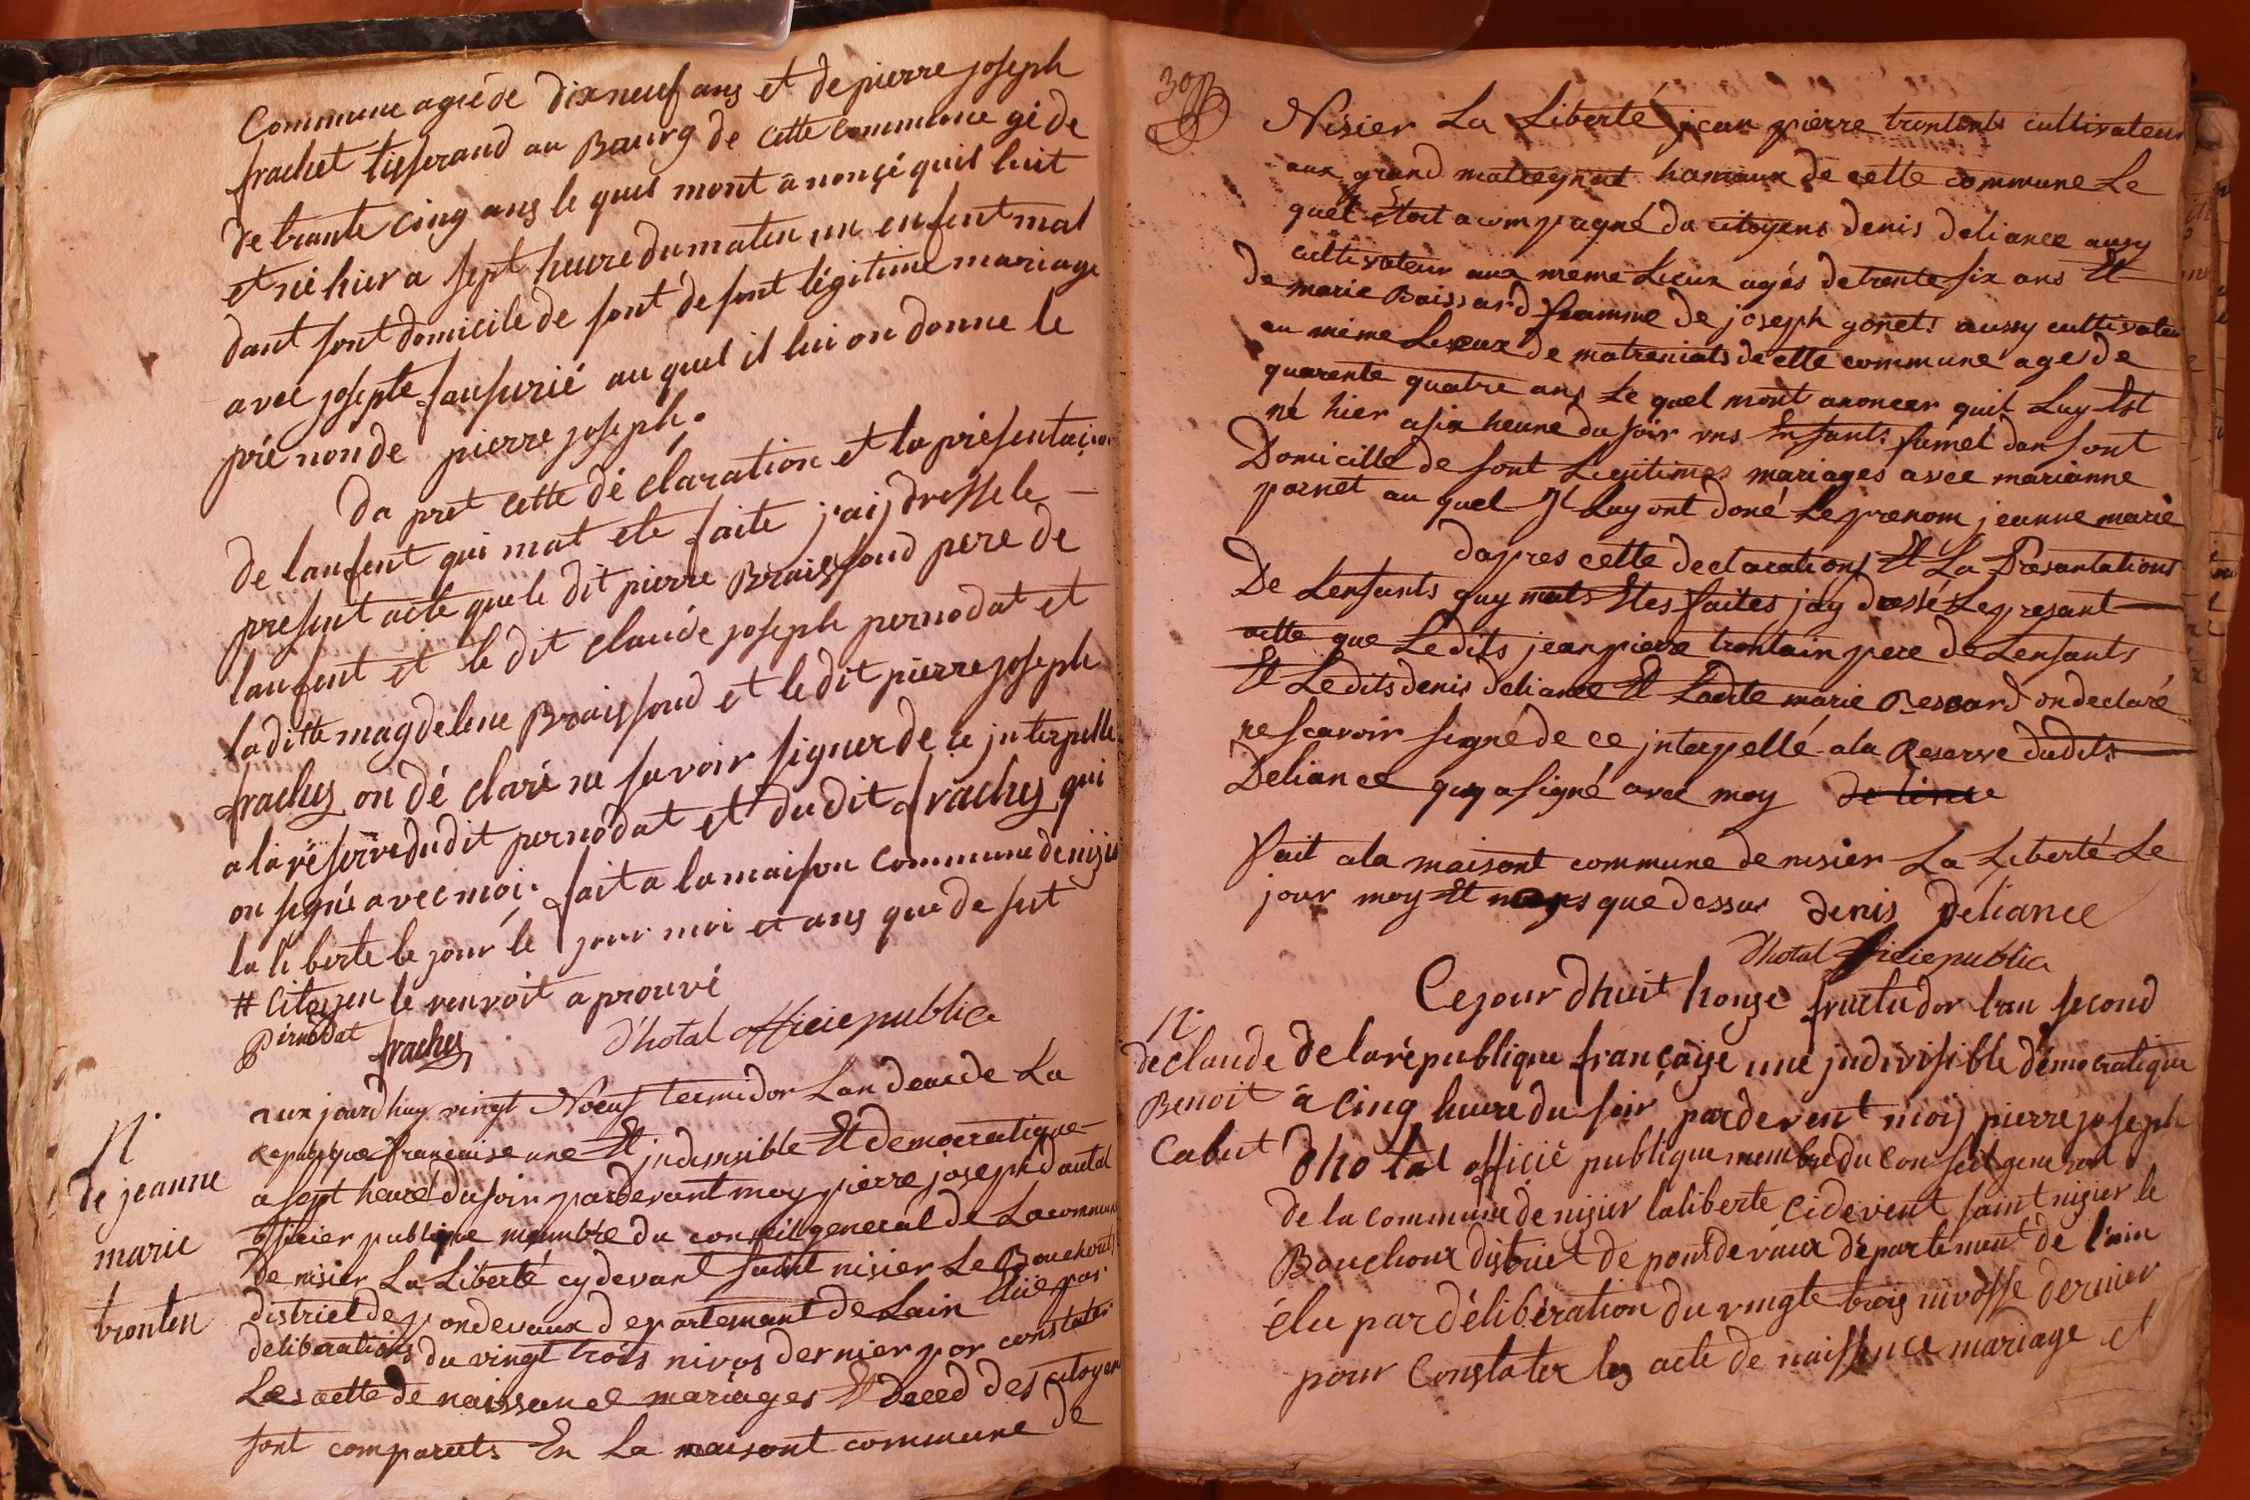 Commune agée de dix neuf ans et de pierre joseph
frachet tisserand au Bourg de cette commune agé de
de trante cinq ans le quel mont anonçé quil luit
et né hier a sept heure du maten un enfent mal
dant sont domicile de sont de sont légitime mariage
avec josepte au quel il lui on donne le
prénon de pierre joseph.
da pret cette dé claration et la présentaçion
de lanfent qui mat ete faite j'aij dresse le
present acte que le dit pierre Braissoud pere de
lanfent et le dit claude joseph pernodat et
laditte magdelene Braissoud et le dit pierre joseph
frachez on dé claré ne savoir signer de ce jnterpelle
a la réserve du dit pernodat et du dit frachez qui
on signé avec moi. fait a la maison commune de nizie
la li berte le jour le jour moi et ans que de sut
# Citoyen le renvoit a prouvé
Pernodat frachez d'hotal officie public
N.
de jeanne
marie
tronten
aux jourdhuy vingt Noeuf termidor Lan deux de La
Republique francaise une Et jndivisible Et democratique
a sept heure du soir pardevant moy pierre joseph dautal
officier publique membre du conseil general de La commune
de nisier La Liberté cy devant saint nisier Le Bouchout
district de pondevaux departemant de Lain Elue par
deliberations du vingt trois nivos dernier por constater
Les actte de naissance mariages Et deced des citoyen
sont comparuts En La maisont commune de
30
Nisier La Liberté jean pierre trontent cultivateur
aux grand matregnat hamaux de cette commune Le
quel Etoit acompagné du citoyent denis deliance aussy
cultivateur aux meme Lieux agés de trente six ans Et
de marie Baissard famme de joseph gonet aussy cultivateu
au méme Lieaux de matreniats de cette commune age de
quarente quatre ans Le quel mont anoncer quil Luy Est
né hier a six heure du soir uns Enfants fumel dan sont
Domicille de sont Legitimes mariages avec marianne
pornet au quel Jl Luy ont doné Le prenom jeanne marie
dapres cette declarations Et La Presantations
De Lenfants quy mats Etes faites jay dressé Le presant
actte que Le dits jean pierre trontain pere de Lenfants
Et Le dits denis deliance Et Ladite marie Bessard on declaré
ne scavoir signé de ce jnterpellé a la Reserve du dits
Deliance quy a signé avec moy
Fait a la maisont commune de nisier La Liberté Le
jour moy Et que dessus denis deliance
d'hotal officie public
N.
de claude
Benoit
Cabut
Ce jour dhuit honze fructudor l'an second
de la république française une jndivisible démocratique
à cinq heure du soir pardevent moij pierre joseph
dhotal officié publique membre du conseil general
de la commune de nizier la liberté cidevent saint nizier le
Bouchoux district de pont de vaux département de l'ain
élu par déliberation du vingte trois nivosse dernier
pour Constater les acte de naissence mariage et